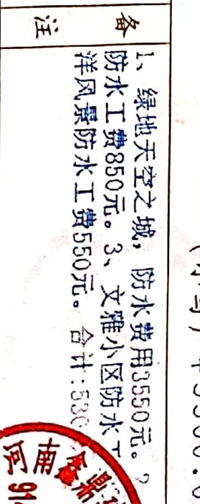 备注
1、绿地天空之城，防水费用3550元。2
防水工费850元。3、文雅小区防水工
洋风景防水工费550元。 合计：530
河南鑫鼎